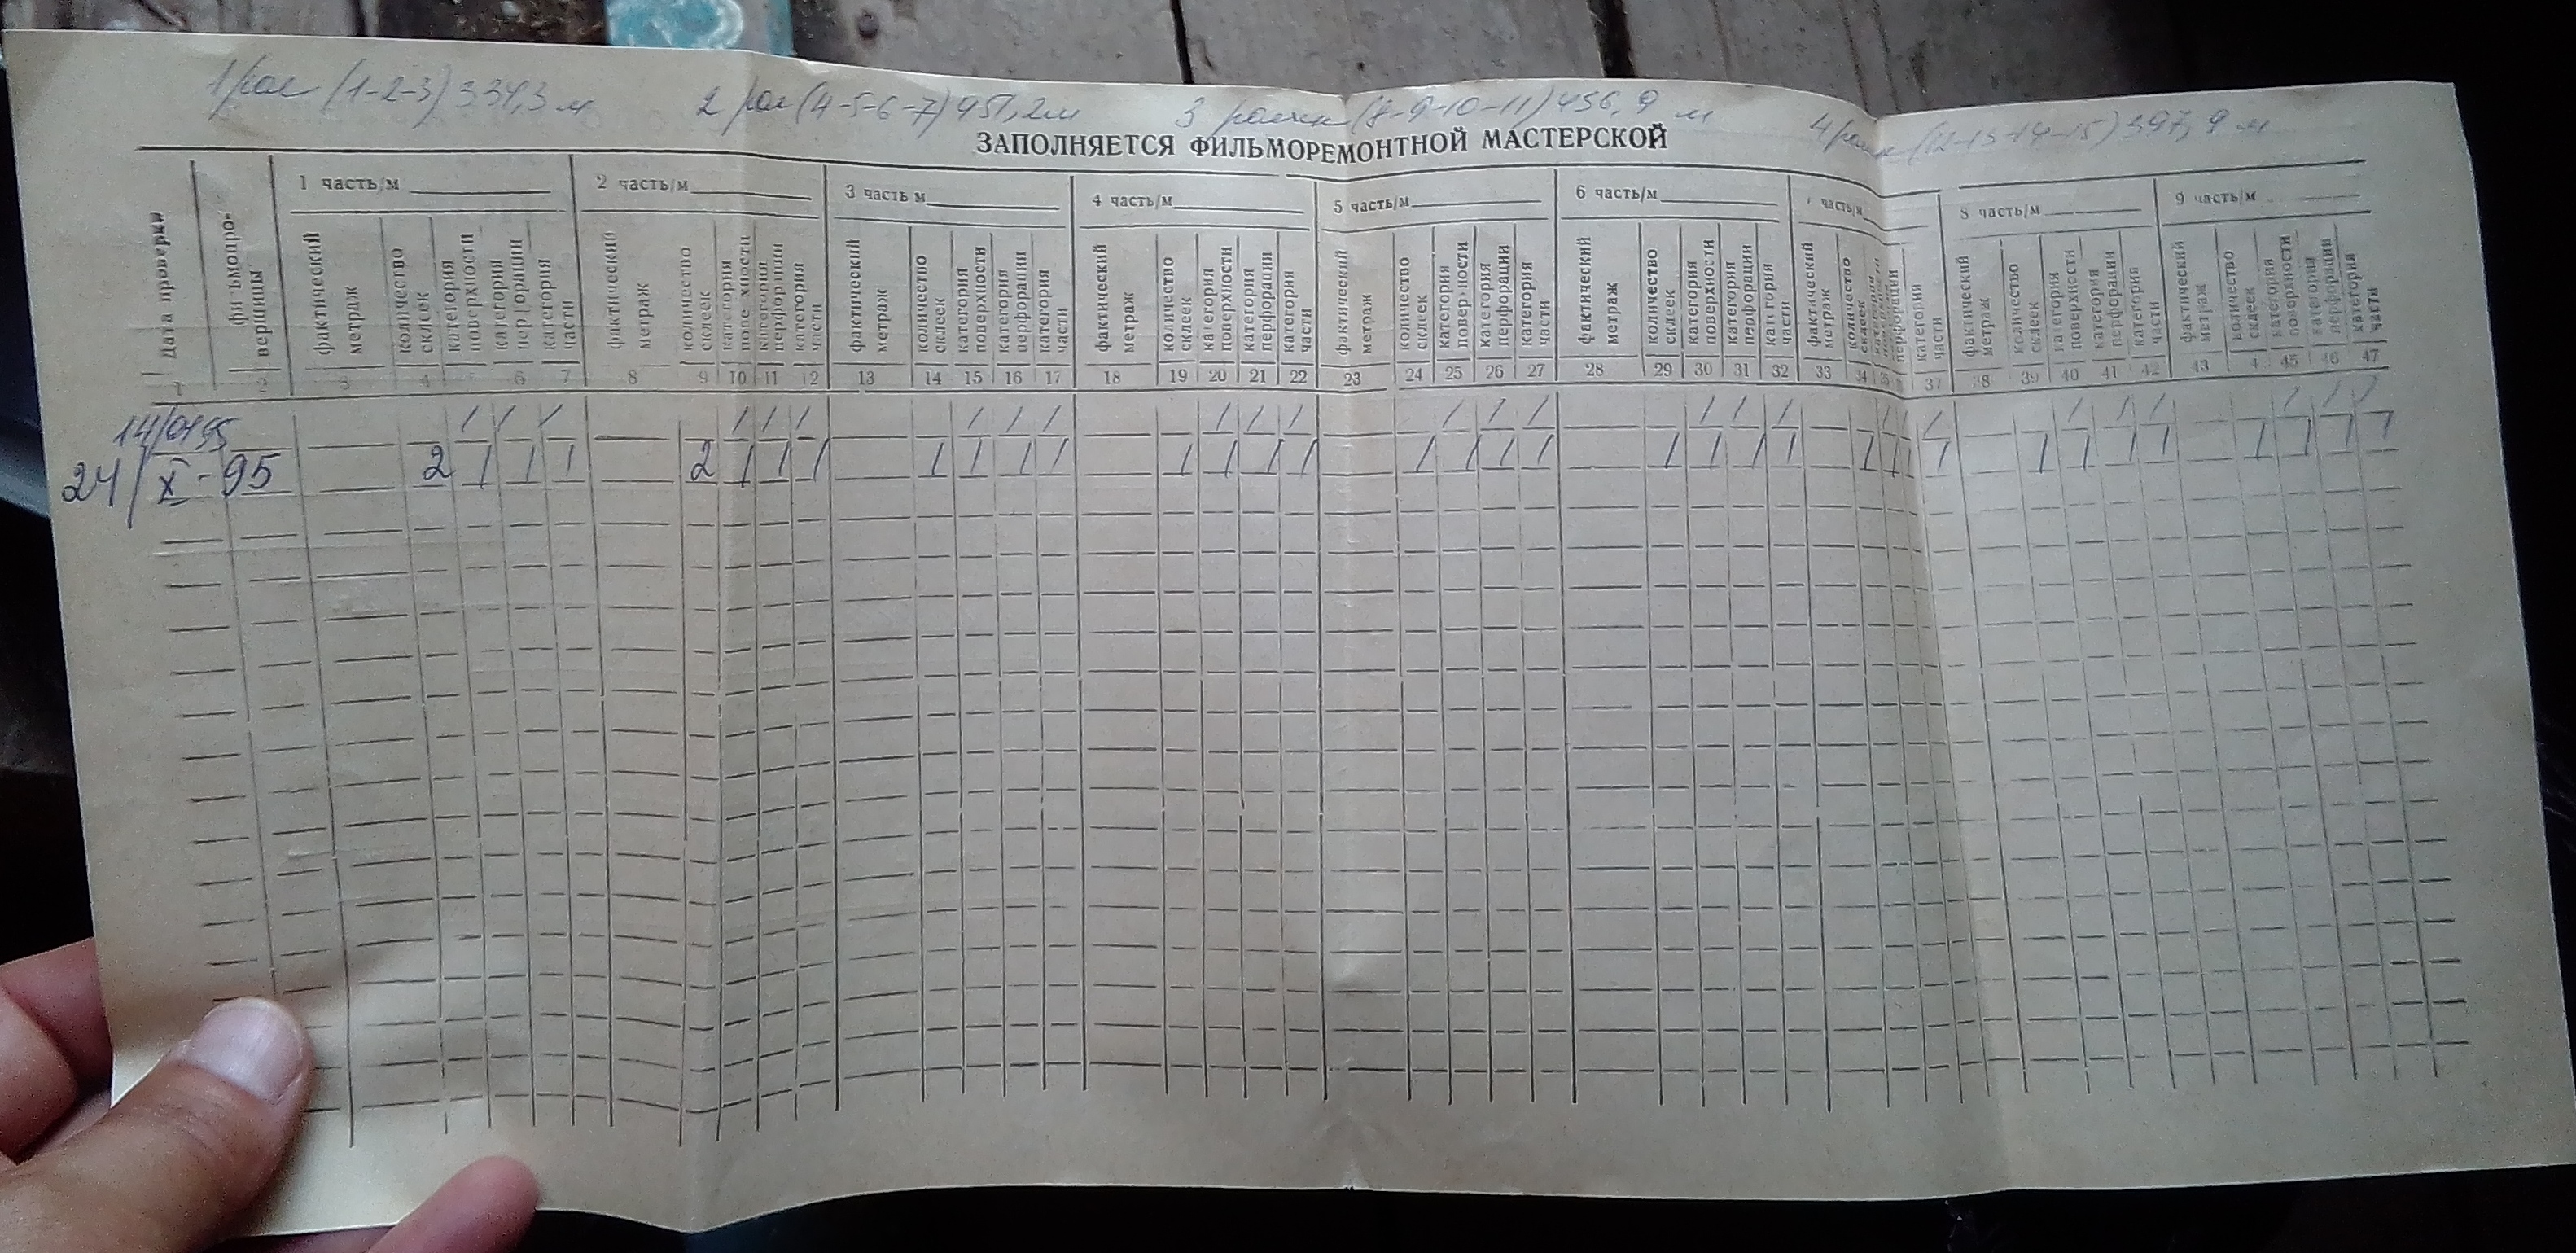 1 рол (1-2-3) 334,3 м 2 рол (4-5-6-7) 451,2м 3 ролик (8-9-10-11) 456,9 м 4 ролик (12-13-14-15) 397,9 м
ЗАПОЛНЯЕТСЯ ФИЛЬМОРЕМОНТНОЙ МАСТЕРСКОЙ
Дата проверки
вершицы
1 часть/м 2 часть/м 3 часть м 4 часть/м 5 часть/м 6 часть/м часть/м 8 часть/м 9 часть/м
фактический метраж количество склеек категория поверхности категория перфорации категория части
фактический метраж количество склеек категория категория перфорации категория части
фактический метраж количество склеек категория поверхности категория перфорации категория части
фактический метраж количество склеек категория поверхности категория перфорации категория части
фактический метраж количество склеек категория поверхности категория перфорации категория части
фактический метраж количество склеек категория поверхности категория перфорации категория части
фактический метраж количество склеек перфорации категория части
фактический метраж количество склеек категория поверхности категория перфорации категория части
фактический метраж количество склеек категория поверхности категория перфорации категория части
1 2 3 4 5 6 7 8 9 10 11 12 13 14 15 16 17 18 19 20 21 22 23 24 25 26 27 28 29 30 31 32 33 34 35 37 38 39 40 41 42 43 4 45 46 47
14/0195 / / / / / / / / / / / / / / / / / / / / / / / / / / /
24/X-95 2 1 1 1 2 1 1 1 1 1 1 1 1 1 1 1 1 1 1 1 1 1 1 1 1 1 1 1 1 1 1 1 1 1 1 1